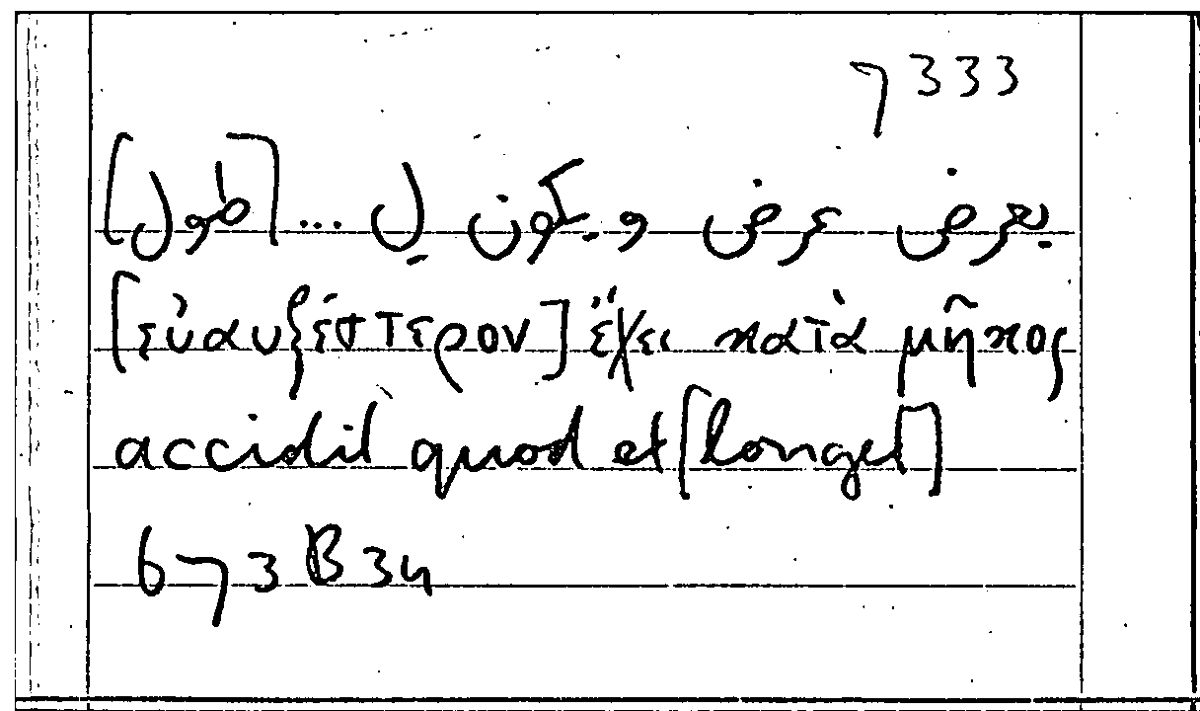 7333
يعرض عرض و يكون ل ... [طول]
[εὐαυξέστερον] ἔχει κατὰ μῆκος
accidit quod et [longet]
673 B 34